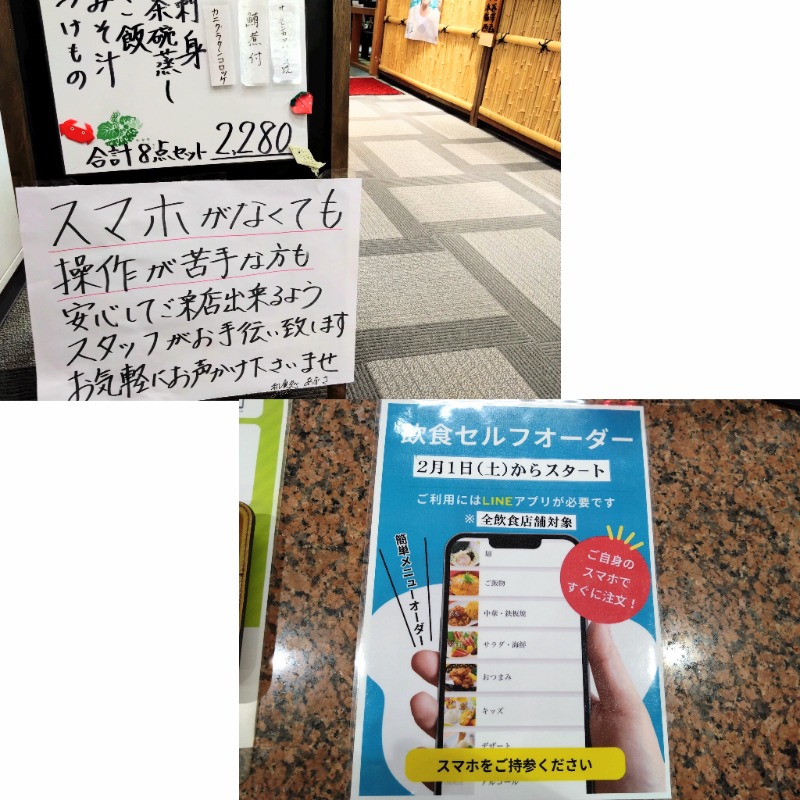 刺身
茶碗蒸し
ご飯
みそ汁
つけもの
カニグラタンコロッケ
鯛煮付
合計8点セット 2,280
スマホがなくても
操作が苦手な方も
安心してご来店出来るよう
スタッフがお手伝い致します
お気軽にお声がけ下さいませ
飲食セルフオーダー
2月1日(土)からスタート
ご利用にはLINEアプリが必要です
※全飲食店舗対象
簡単メニューオーダー
ご自身の
スマホで
すぐに注文！
麺
ご飯物
中華・鉄板焼
サラダ・海鮮
おつまみ
キッズ
デザート
スマホをご持参ください
アルコール